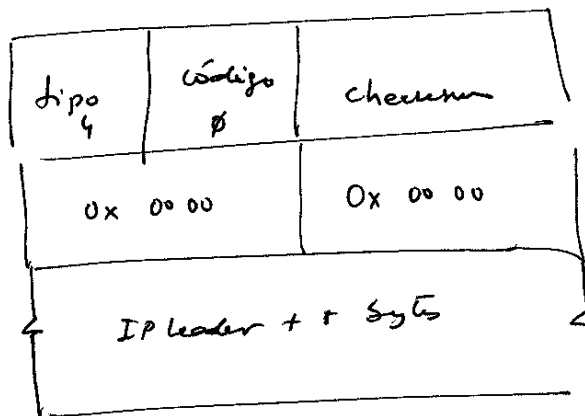 tipo código checksum
4 ∅
0x 00 00 0x 00 00
IP header + 8 bytes